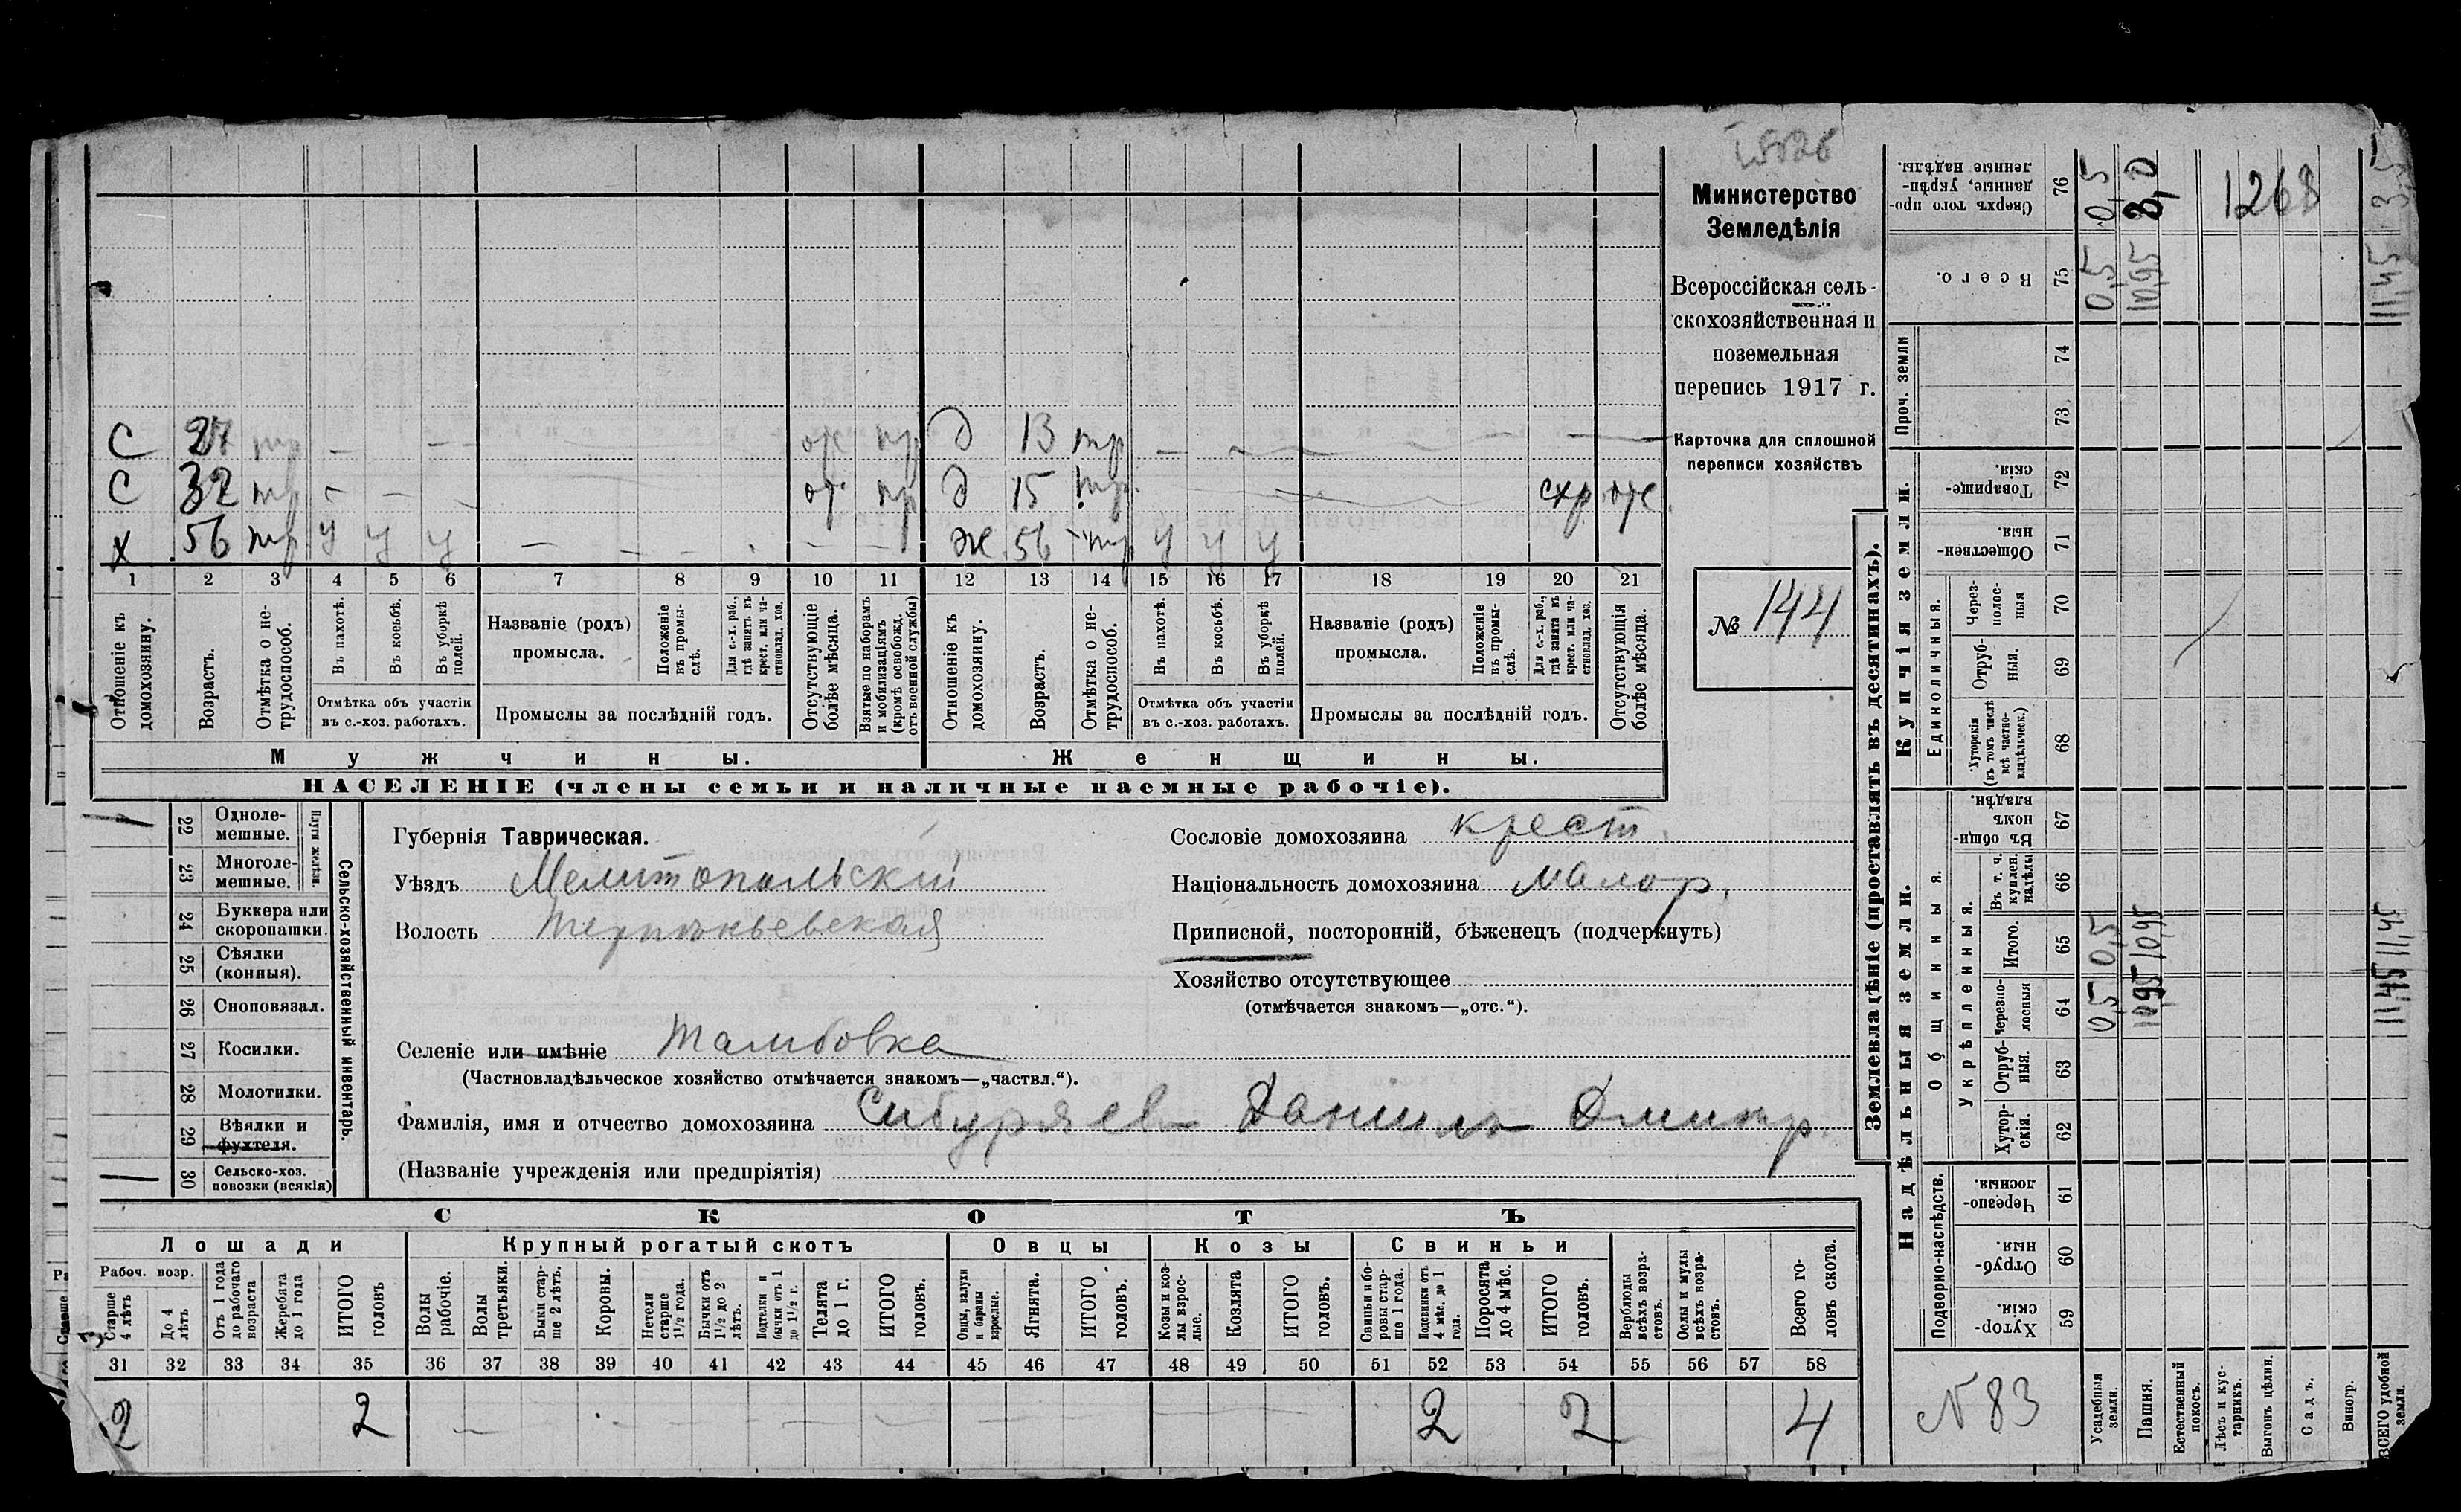 Министерство
Земледѣлія
Всероссійская сель-
скохозяйственная и
поземельная
перепись 1917 г.
Карточка для сплошной
переписи хозяйствъ
№ 144
С 27 тр — — — от пр д 13 тр —
С 32 тр — — — от пр д 15 тр. схр отс
Х 56 тр у у у — — — — — — ж 56 тр у у у
1 2 3 4 5 6 7 8 9 10 11 12 13 14 15 16 17 18 19 20 21
Отношеніе къ домохозяину.
Возрастъ.
Отмѣтка о не-трудоспособ.
Въ пахотѣ.
Въ косьбѣ.
Въ уборкѣ полей.
Отмѣтка объ участіи въ с.-хоз. работахъ.
Названіе (родъ) промысла.
Положеніе въ промы-слѣ.
Для с.-х. раб., гдѣ занятъ въ крест. или ча-стновлад. хоз.
Промыслы за послѣдній годъ.
Отсутствующіе болѣе мѣсяца.
Взятые по наборамъ и мобилизаціямъ (кромѣ освобожд. отъ военной службы)
Отношеніе къ домохозяину.
Возрастъ.
Отмѣтка о не-трудоспособ.
Въ пахотѣ.
Въ косьбѣ.
Въ уборкѣ полей.
Отмѣтка объ участіи въ с.-хоз. работахъ.
Названіе (родъ) промысла.
Положеніе въ промы-слѣ.
Для с.-х. раб., гдѣ занята въ крест. или ча-стновлад. хоз.
Промыслы за послѣдній годъ.
Отсутствующія болѣе мѣсяца.
Мужчины.
Женщины.
НАСЕЛЕНІЕ (члены семьи и наличные наемные рабочіе).
Сельско-хозяйственный инвентарь.
Плуги желѣзн.
22 Одноле-мешные.
23 Многоле-мешные.
24 Буккера или скоропашки.
25 Сѣялки (конныя).
26 Сноповязал.
27 Косилки.
28 Молотилки.
29 Вѣялки и фухтеля.
30 Сельско-хоз. повозки (всякія)
Губернія Таврическая.
Уѣздъ Мелитопольскій
Волость
Селеніе или имѣніе Тамбовка
(Частновладѣльческое хозяйство отмѣчается знакомъ—„частвл.“).
Фамилія, имя и отчество домохозяина Сибуряев Данила Дмитр.
(Названіе учрежденія или предпріятія)
Сословіе домохозяина крест.
Національность домохозяина малор.
Приписной, посторонній, бѣженецъ (подчеркнуть)
Хозяйство отсутствующее
(отмѣчается знакомъ—„отс.“).
СКОТЪ
Лошади
Крупный рогатый скотъ
Овцы
Козы
Свиньи
Рабоч. возр.
Старше 4 лѣтъ
До 4 лѣтъ
Отъ 1 года до рабочаго возраста
Жеребята до 1 года
ИТОГО головъ
Волы рабочіе.
Волы третьяки.
Быки стар-ше 2 лѣтъ.
Коровы.
Нетели старше 1½ года.
Бычки отъ 1½ до 2 лѣтъ.
Подтелки и бычки отъ 1 до 1½ г.
Телята до 1 г.
ИТОГО головъ.
Овцы, валухи и бараны взрослые.
Ягнята.
ИТОГО головъ.
Козы и коз-лы взрос-лые.
Козлята
ИТОГО головъ.
Свиньи и бо-ровы стар-ше 1 года.
Подсвинки отъ 4 мѣс. до 1 года.
Поросята до 4 мѣс.
ИТОГО головъ.
Верблюды всѣхъ возра-стовъ.
Ослы и мулы всѣхъ возра-стовъ.
Всего го-ловъ скота.
31 32 33 34 35 36 37 38 39 40 41 42 43 44 45 46 47 48 49 50 51 52 53 54 55 56 57 58
2 2 2 2 4
Землевладѣніе (проставлять въ десятинахъ).
Купчія земли.
Надѣльныя земли.
Сверхъ того про-данные, укрѣп-ленные надѣлы. 76
Всего. 75
Проч. земли 74 73
Товарище-скія. 72
Обществен-ныя 71
Единоличныя.
Через-полос-ныя 70
Отруб-ныя. 69
Хуторскія (въ томъ числѣ всѣ частно-владѣльческ.) 68
Общинныя.
Въ общин-номъ владѣн. 67
Укрѣпленныя.
Въ т. ч. куплен. надѣлы 66
Итого. 65
Черезпо-лосныя 64
Отруб-ныя. 63
Хутор-скія. 62
Подворно-наслѣдств.
Черезпо-лосныя 61
Отруб-ныя. 60
Хутор-скія. 59
Усадебныя земли. 0,5 0,5 0,5 0,5
Пашня. 10,95 10,95 10,95 3,0
Естественный покосъ.
Лѣсъ и кус-тарникъ.
Выгонъ цѣлин.
Садъ.
Виногр.
ВСЕГО удобной земли. 11,45 11,45 11,45 3,5
1268
N 83